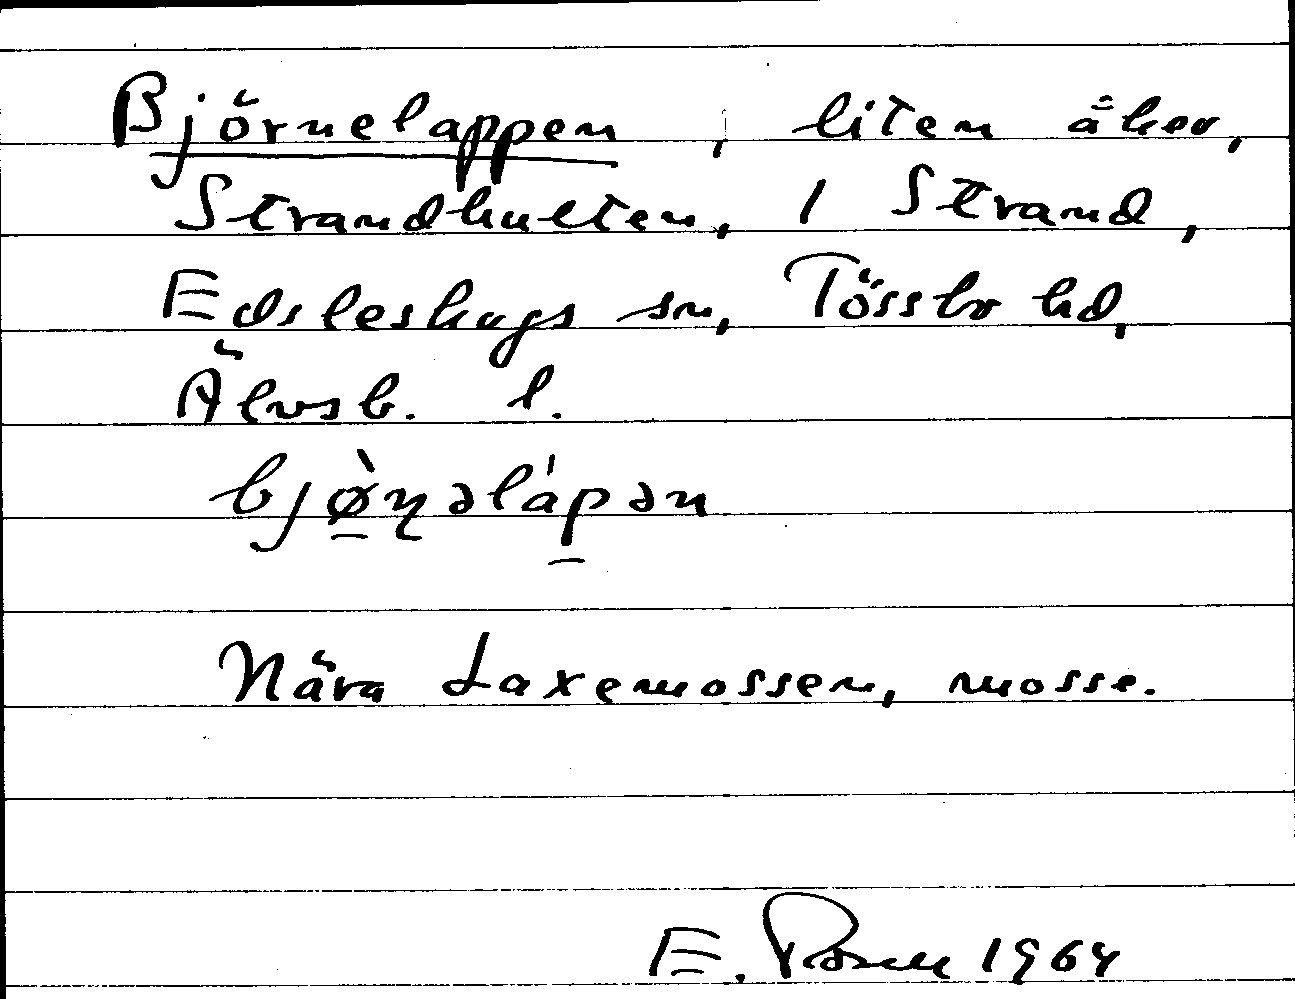 Björnelappen, liten åker,
Strandhulten, 1 Strand,
Edsleskogs sn, Tössbo hd,
Älvsb. l.
bjø̀ɳəlápən
Nära Laxemossen, mosse.
E. Rosell 1964